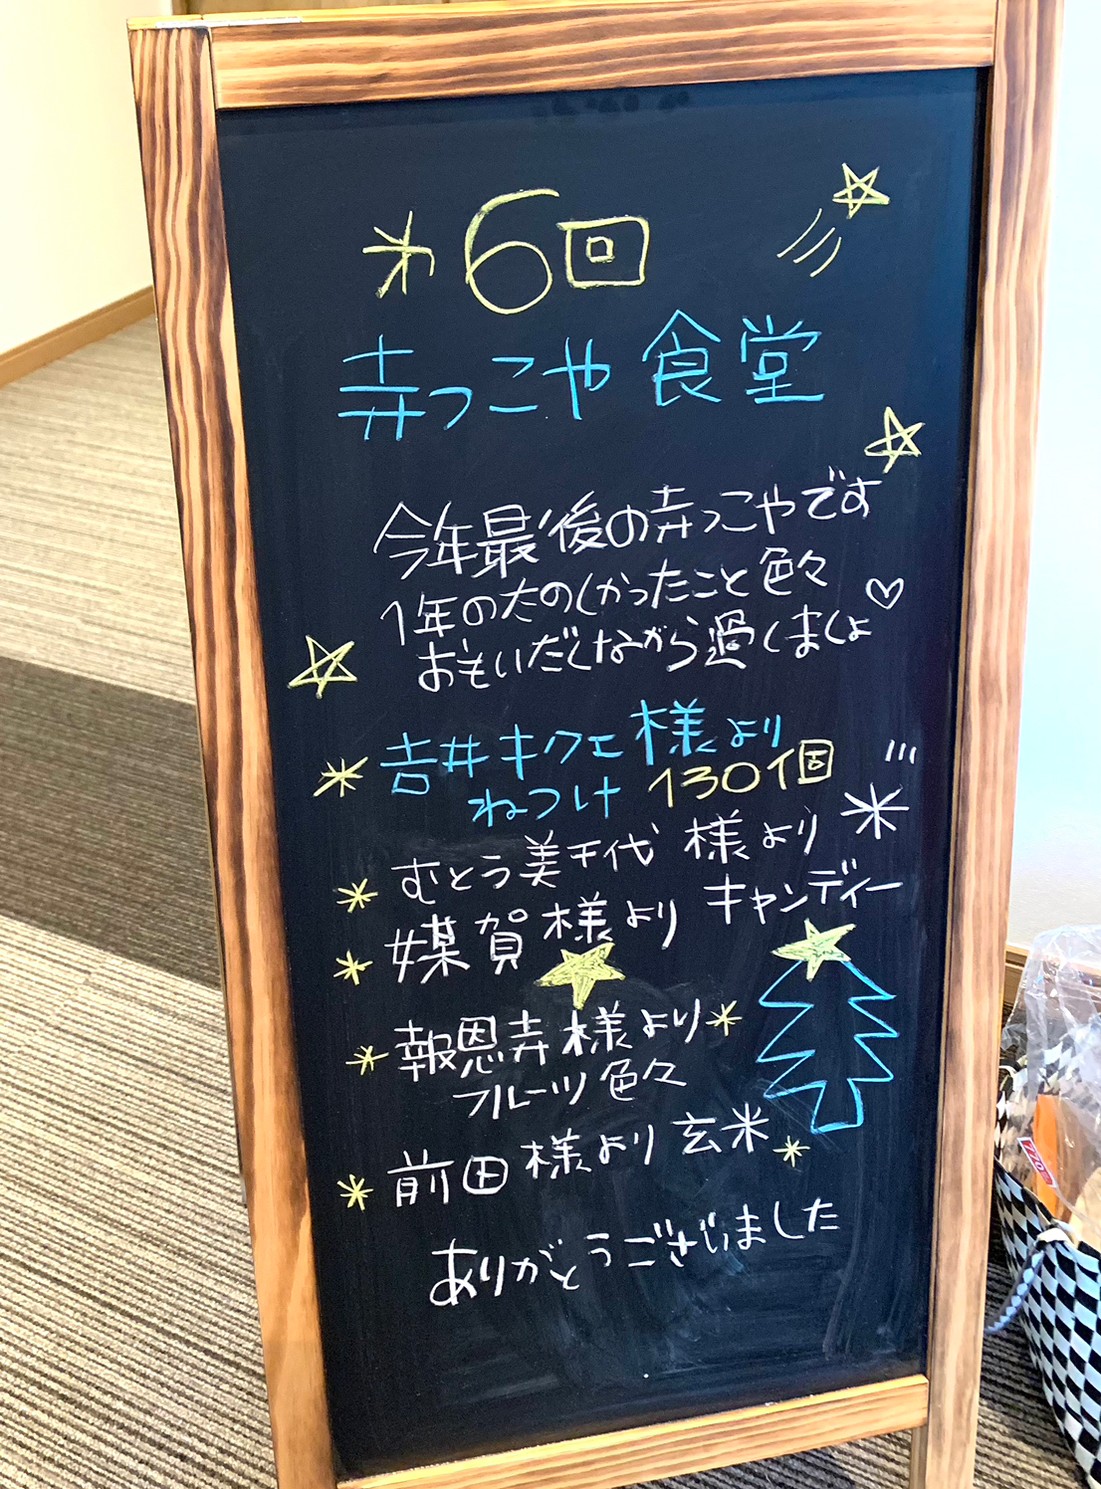 第6回
寺っこや食堂
今年最後の寺っこやです
1年のたのしかったこと色々
おもいだしながら過しましょ♡
吉井キクエ様より
ねつけ 130個
むとう美千代様より
キャンディー
媒賀様より
報恩寺様より
フルーツ色々
前田様より玄米
ありがとうございました
770